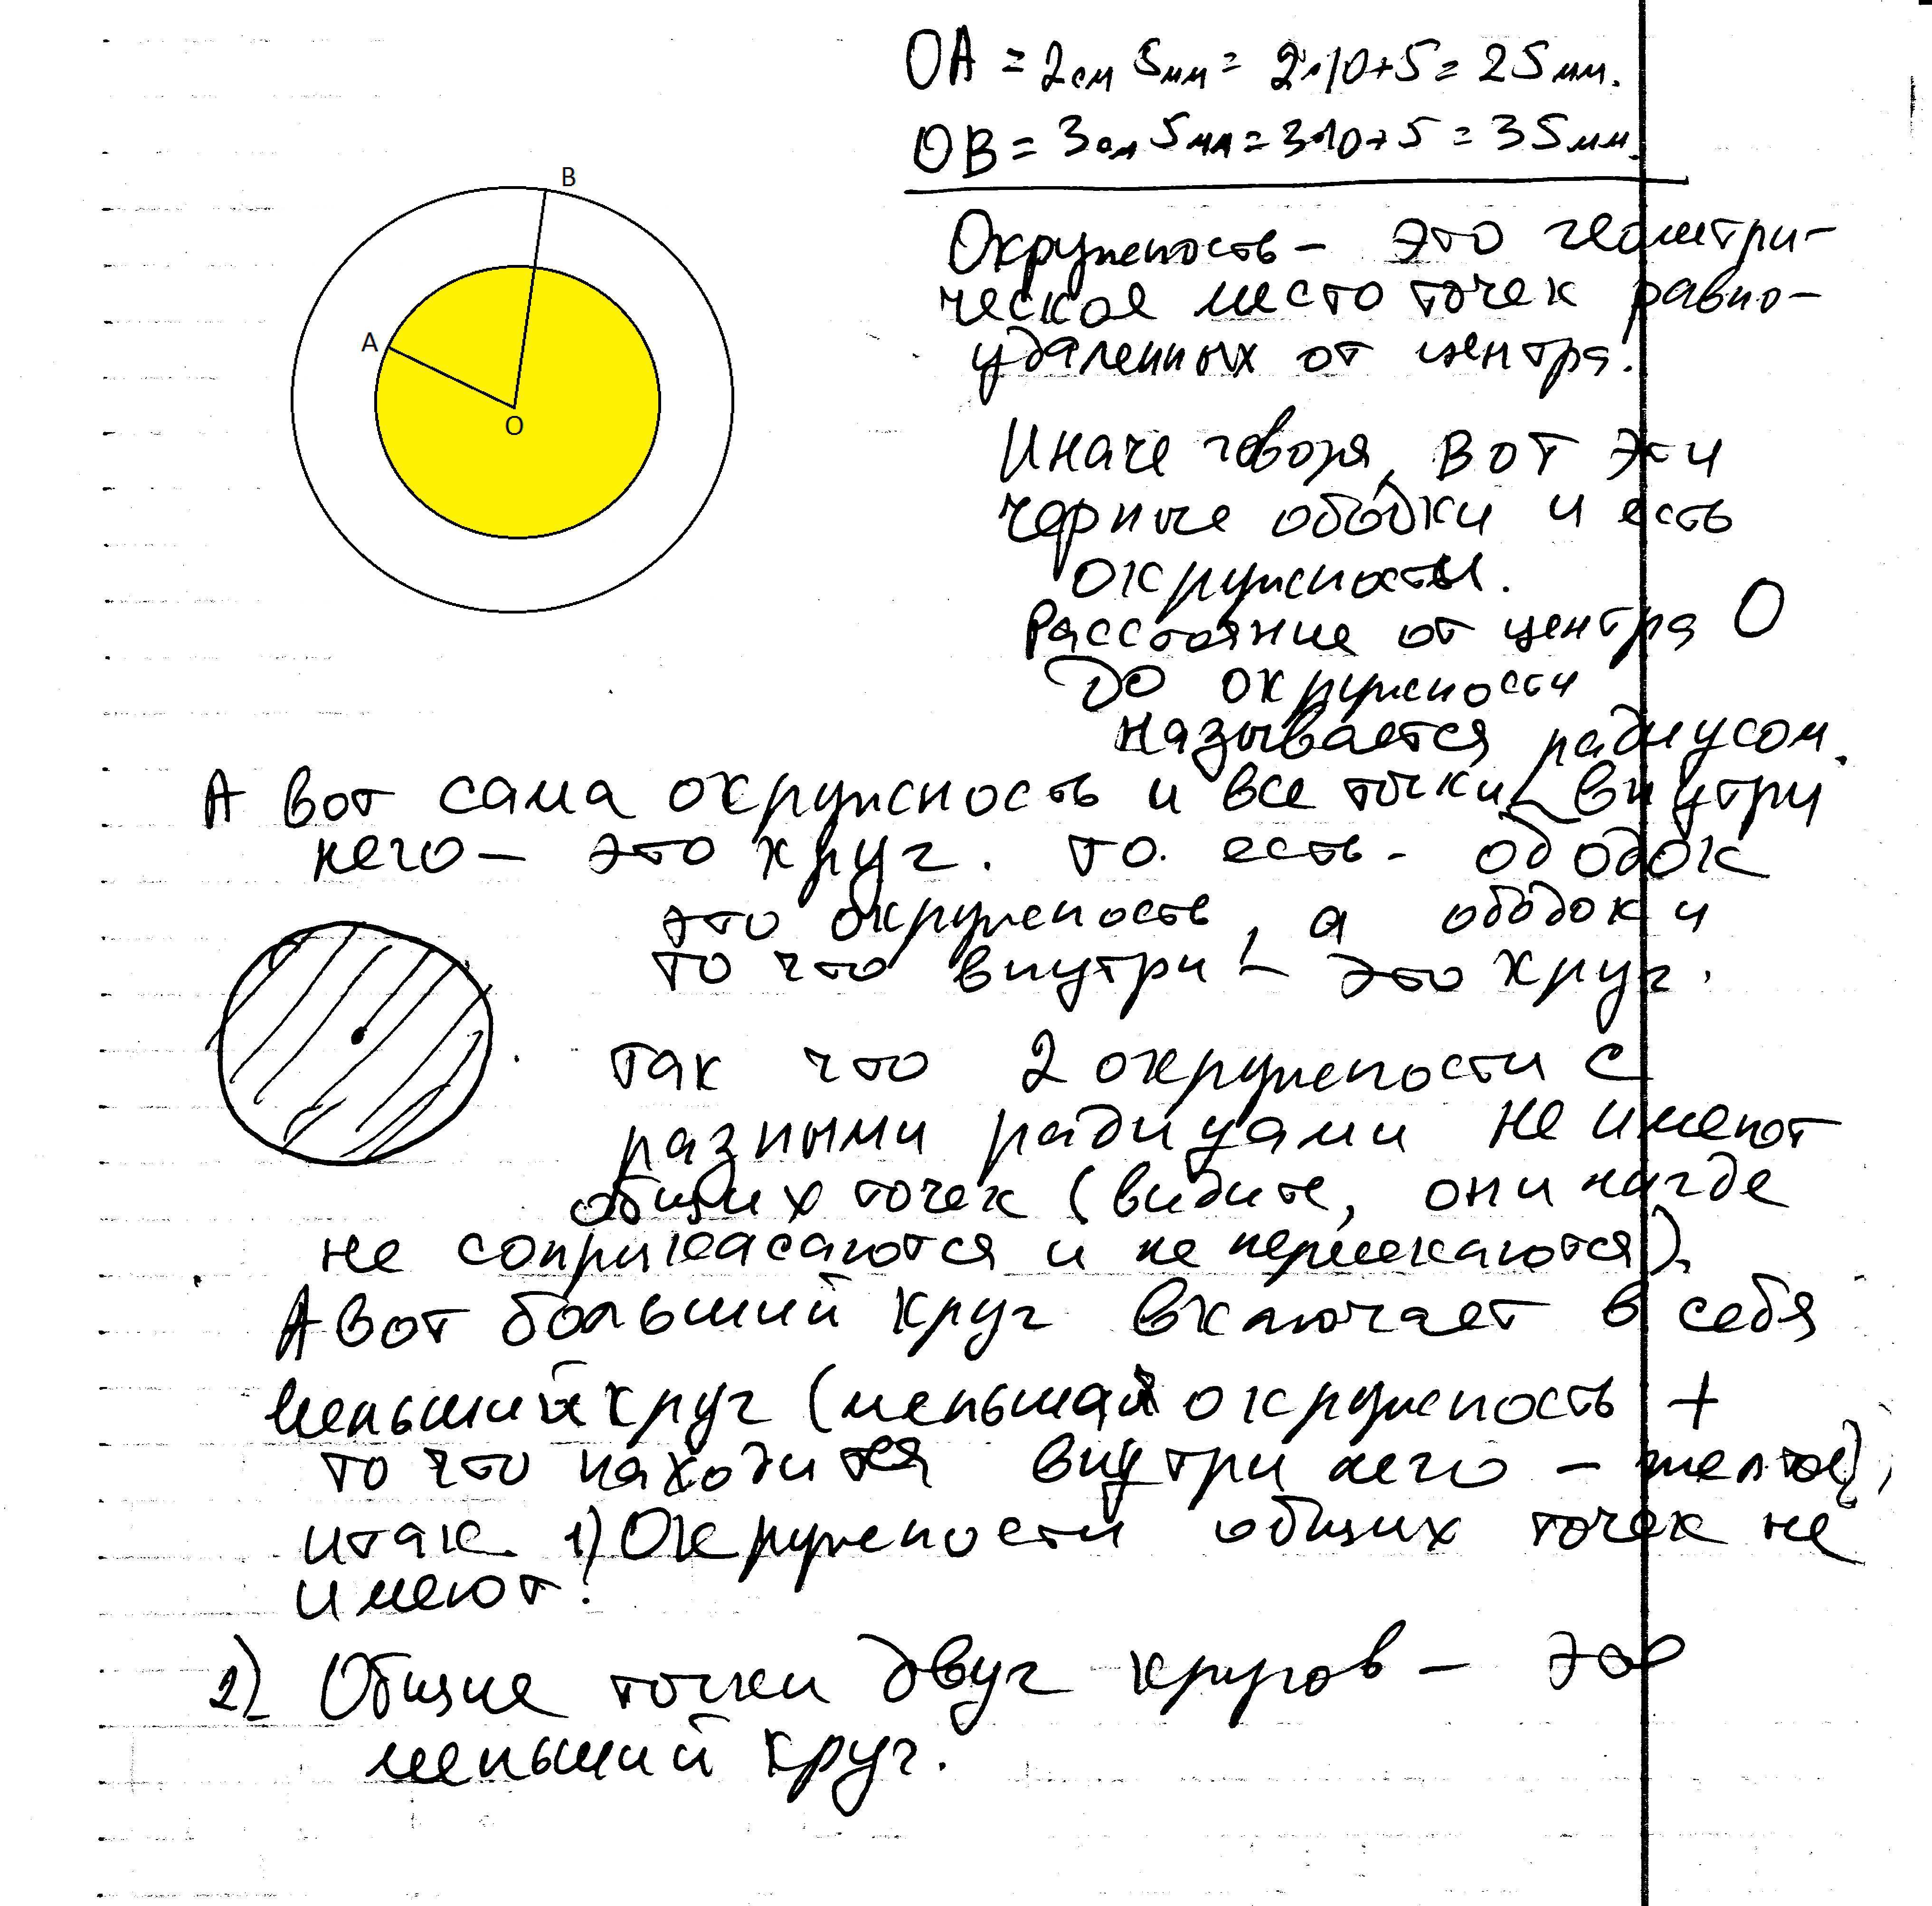 OA = 2см 5мм = 2·10+5 = 25мм.
OB = 3см 5мм = 3·10+5 = 35мм.
B
A
O
Окружность - это геометри-
ческое место точек равно-
удаленных от центра.
Иначе говоря, вот эти
черные ободки и есть
окружности.
Расстояние от центра O
до окружности
называется радиусом.
А вот сама окружность и все точки внутри
него - это круг. то есть - ободок
это окружность, а ободок и
то что внутри - это круг.
так что 2 окружности с
разными радиуами не имеют
общих точек (видите, они нигде
не соприкасаются и не пересекаются).
А вот больший круг включает в себя
меньший круг (меньшая окружность +
то что находится внутри него - желтое),
итак 1) Окружности общих точек не
имеют.
2) Общие точки двуг кругов - это
меньший круг.